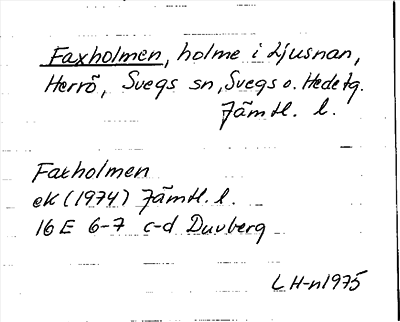 Faxholmen, holme i Ljusnan,
Herrö, Svegs sn, Svegs o. Hede tg.
Jämtl. l.
Faxholmen
eK (1974) Jämtl. l.
16 E 6-7 c-d Duvberg
L H-n 1975